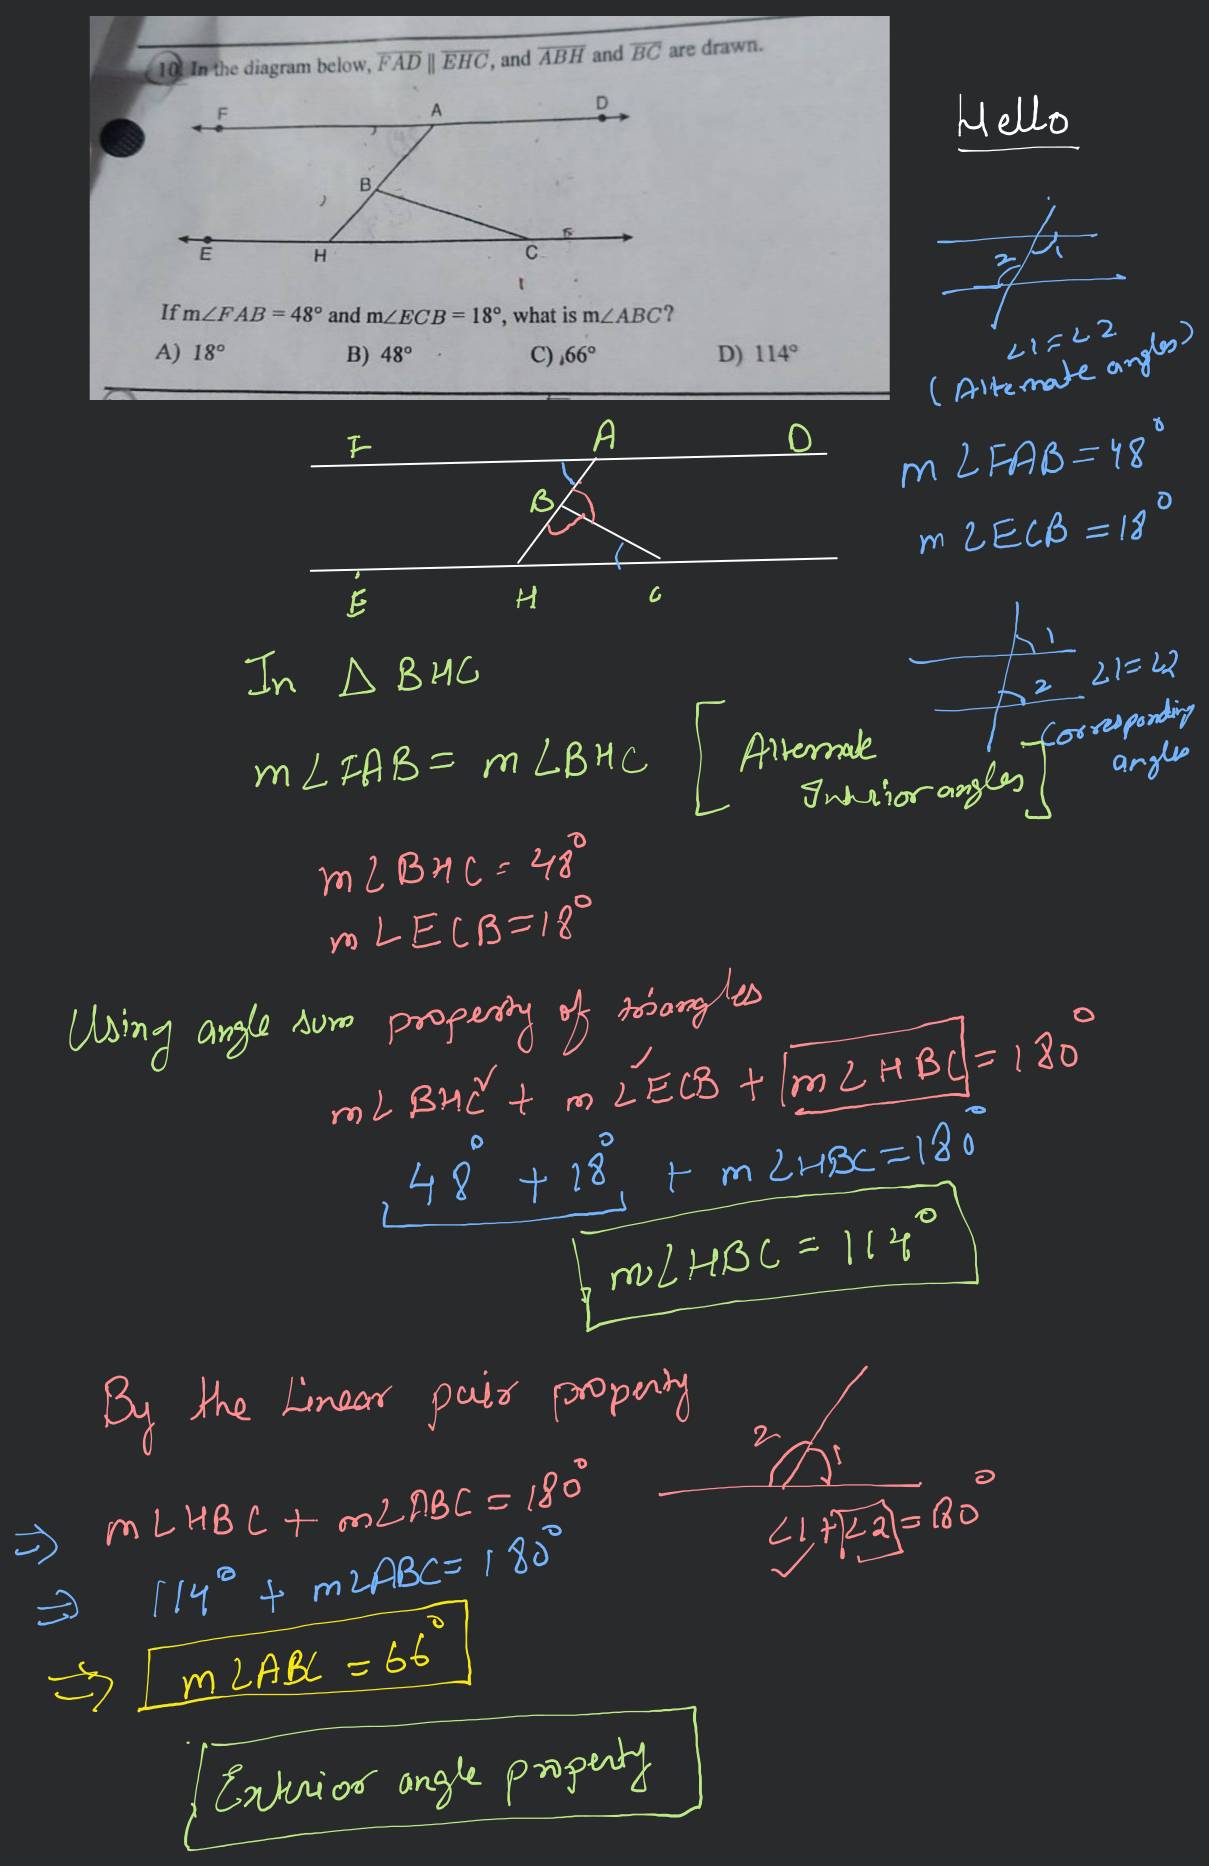 10. In the diagram below, FAD ∥ EHC, and ABH and BC are drawn.
F A D
B
E H C
If m∠FAB = 48° and m∠ECB = 18°, what is m∠ABC?
A) 18° B) 48° C) 66° D) 114°
Hello
1
2
∠1 = ∠2
(Alternate angles)
m∠FAB = 48°
m∠ECB = 18°
F A D
B
E H C
1
2
∠1 = ∠2
Corresponding
angles
In △ BHC
m∠FAB = m∠BHC [Alternate
Interior angles]
m∠BHC = 48°
m∠ECB = 18°
Using angle sum property of triangles
m∠BHC + m∠ECB + m∠HBC = 180°
48° + 18° + m∠HBC = 180°
m∠HBC = 114°
By the Linear pair property
2 1
∠1 + ∠2 = 180°
⇒ m∠HBC + m∠ABC = 180°
⇒ 114° + m∠ABC = 180°
⇒ m∠ABC = 66°
Exterior angle property